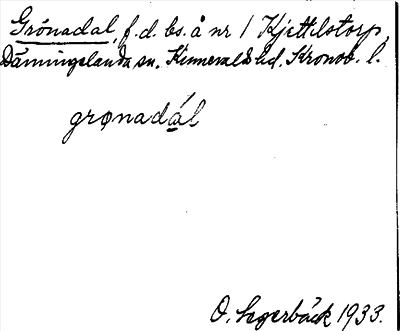 Grönadal, f.d. bs. å nr 1 Kjettilstorp,
Dänningelanda sn. Kinnevalds hd. Kronob. l.
grønadál
O. Segerbäck 1933.